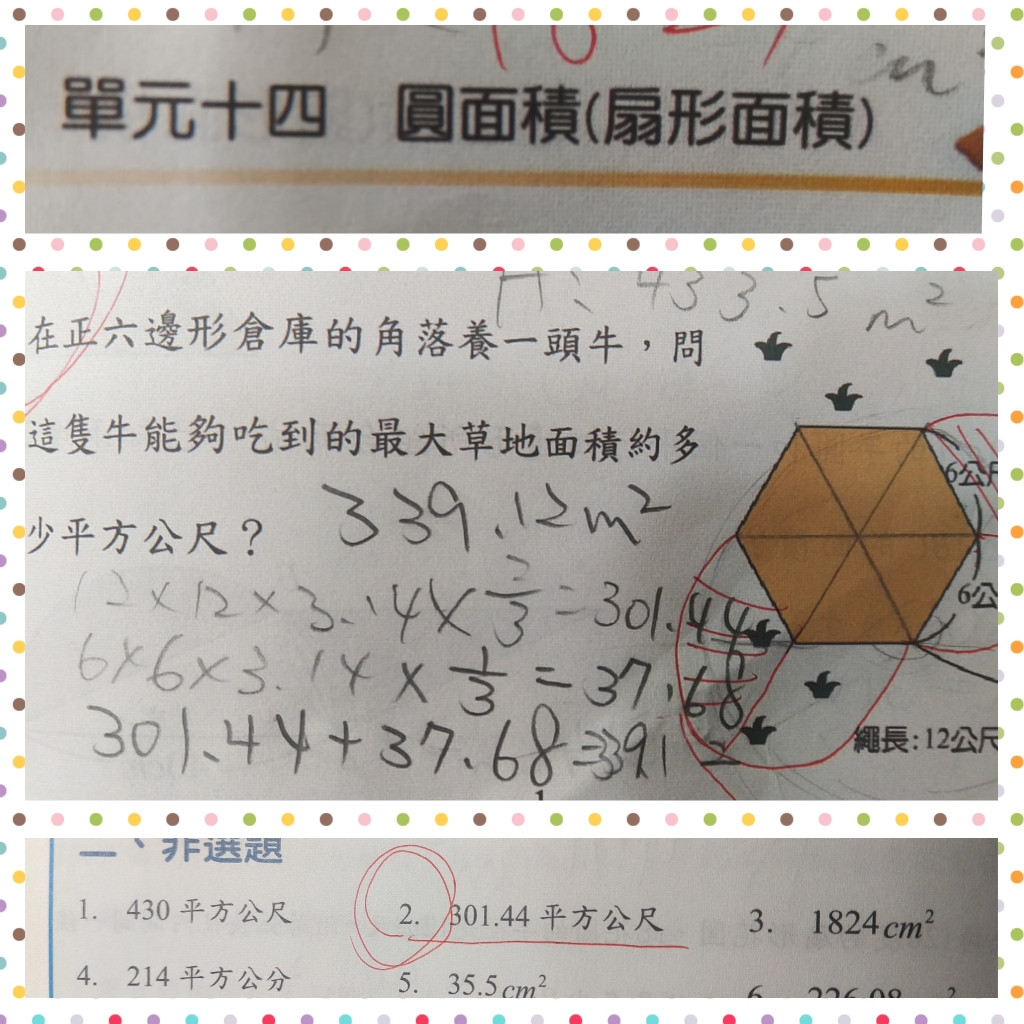 單元十四 圓面積(扇形面積)
在正六邊形倉庫的角落養一頭牛，問
這隻牛能夠吃到的最大草地面積約多
少平方公尺？
A: 433.5 m²
339.12m²
12×12×3.14×2/3=301.44
6×6×3.14×1/3=37.68
301.44+37.68=339.12
6公尺
6公
繩長:12公尺
二、非選題
1. 430 平方公尺
2. 301.44 平方公尺
3. 1824cm²
4. 214 平方公分
5. 35.5cm²